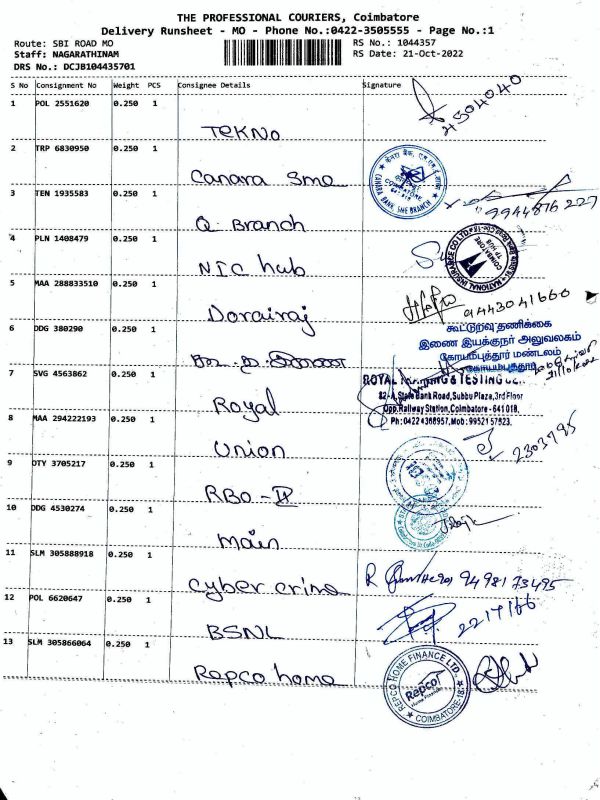 THE PROFESSIONAL COURIERS, Coimbatore
Delivery Runsheet - MO - Phone No.:0422-3505555 - Page No.:1
Route: SBI ROAD MO RS No.: 1044357
Staff: NAGARATHINAM RS Date: 21-Oct-2022
DRS No.: DCJB104435701
S No Consignment No Weight PCS Consignee Details Signature
1 POL 2551620 0.250 1
TEKNO 4504040
2 TRP 6830950 0.250 1
Canara Sme
CANARA BANK, SME BRANCH
3 TEN 1935583 0.250 1
Q. Branch 9944876227
4 PLN 1408479 0.250 1
NIC hub
NATIONAL INSURANCE CO LTD
COIMBATORE
TP HUB
5 MAA 288833510 0.250 1
Dorairaj 9443041660
6 DDG 380290 0.250 1
கூட்டுறவு தணிக்கை
இணை இயக்குநர் அலுவலகம்
கோயம்புத்தூர் மண்டலம்
கோயம்புத்தூர்
21/10/2022
7 SVG 4563862 0.250 1
Royal
ROYAL TRAINING & TESTING
82-A, State Bank Road, Subbu Plaza, 3rd Floor
Opp. Railway Station, Coimbatore - 641 018.
Ph: 0422 4368957, Mob: 99521 57823.
8 MAA 294222193 0.250 1
Union 2303795
9 OTY 3705217 0.250 1
RBO - IV
10 DDG 4530274 0.250 1
main
11 SLM 305888918 0.250 1
Cyber crime 94981 73495
12 POL 6620647 0.250 1
BSNL 2217166
13 SLM 305866064 0.250 1
Repco home
REPCO HOME FINANCE LTD.,
Repco
Home Finance
COIMBATORE-18